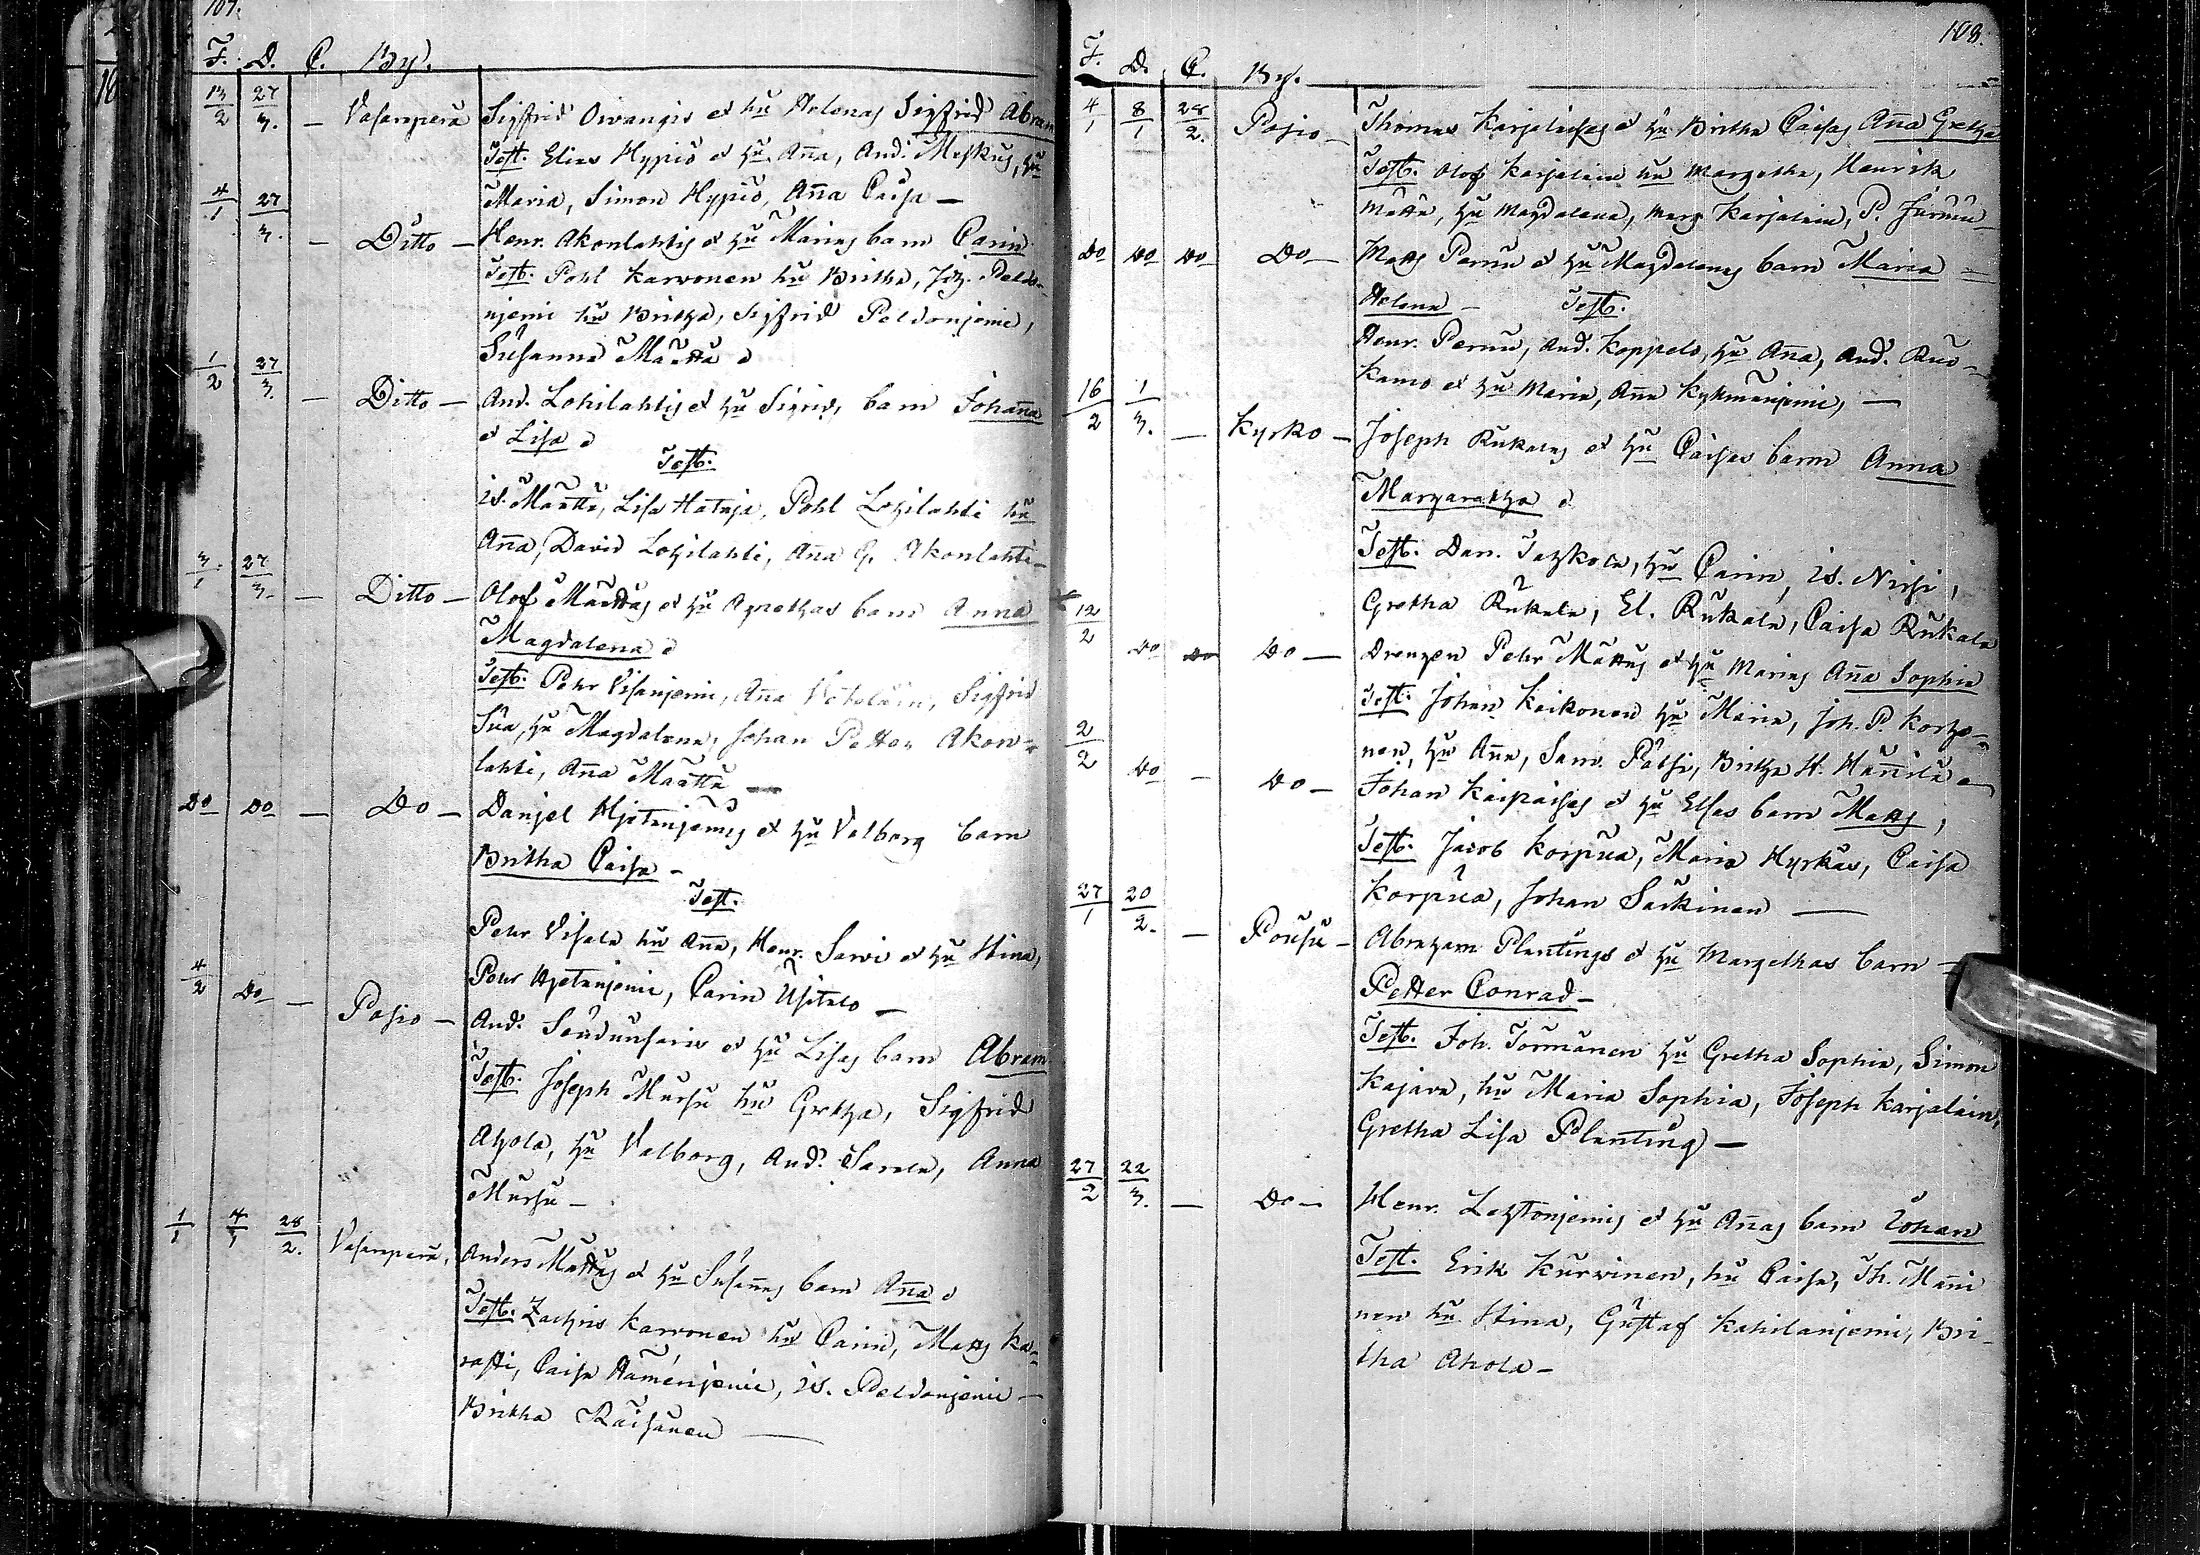 107.
F. D. C. By.
13/2 27/3. — Vasaraperä Sigfrid Oivangis et hu Helenas Sigfrid Abram
Test. Elias Hyppiö et hu Anna, And. Meskus, hu
Maria, Simon Hyppiö, Anna Caisa —
4/1 27/3. — Ditto — Henr. Akonlahtis et hu Marias barn Carin
Test. Pohl Karvonen hu Britha, Joh. Peldo-
njemi hu Britha, Sigfrid Peldonjemi,
Susanna Määttä
1/2 27/3. — Ditto — And. Lohilahtis et hu Sigrids barn Johanna
et Lisa
Test.
is. Määttä, Lisa Hataja, Pohl Lohilahti hu
Anna, David Lohilahti, Anna G. Akonlahti —
3/1 27/3. — Ditto — Olof Määttäs et hu Agnethas barn Anna
Magdalena
Test. Pehr Visanjemi, Anna Sigfrid
Sua, hu Magdalena, Johan Petter Akon-
lahti, Anna Määttä —
Do Do — Do — Danjel Hjetanjemis et hu Valborg barn
Britha Caisa —
Test.
Pehr Visala hu Anna, Henr. Sarvi et hu Stina,
Pehr Hjetanjemi, Carin Usitalo —
4/2 Do — Posio — And. Soudunsaris et hu Lisas barn Abram
Test. Joseph Mursu hu Gretha, Sigfrid
Ahola, hu Valborg, And. Sarala, Anna
Mursu —
1/1 4/1 28/2. Vasaraperä, Anders Määttäs et hu Susannas barn Anna
Test. Zachris Karvonen hu Carin, Matts Ka-
rasti, Caisa Hamenjemi, is. Peldonjemi —
Britha Räisänen —
108.
F. D. C. By.
4/1 8/1 28/2. Posio — Thomas Karjalaises et hu Britha Caisas Anna Gretha
Test. Olof Karjalain hu Margetha, Henrik
Määttä, hu Magdalena, Marg. Karjalain, P. Jurmu —
Do Do Do Do — Matts Pernu et hu Magdalenas barn Maria
Helena — Test.
Henr. Pernu, And. Koppelo, hu Anna, And. Ruo-
kamo et hu Maria, Anna Kykmänjemi, —
16/2 1/3. — Kyrko — Joseph Rukalas et hu Caisas barn Anna
Margaretha
Test. Dan. Tazkola, hu Carin, is. Nissi,
Gretha Rukala, El. Rukala, Caisa Rukala
12/2 Do Do Do — Drengen Pehr Määttäs et hu Marias Anna Sophia
Test. Johan Keikonen hu Maria, Joh. P. Korho-
nen, hu Anna, Sam. Pätsi, Britha St. Hannila
2/2 Do — Do — Johan Kaipaises et hu Elsas barn Matts,
Test. Jacob Korpua, Maria Hyrkäs, Caisa
Korpua, Johan Säkkinen —
27/1 20/2. — Pousu — Abraham Plantings et hu Margethas barn
Petter Conrad —
Test. Joh. Törmänen hu Gretha Sophia, Simon
Kajava, hu Maria Sophia, Joseph Karjalain,
Gretha Lisa Planting —
27/2 22/3. — Do — Henr. Lehtonjemis et hu Annas barn Johan
Test. Erik Kurvinen, hu Caisa, Th. Manni
nen hu Stina, Gustaf Kahilanjemi, Bri-
tha Ahola —